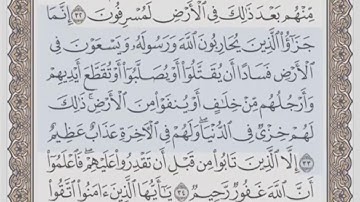 مِّنْهُم بَعْدَ ذَٰلِكَ فِي الْأَرْضِ لَمُسْرِفُونَ ٣٢ إِنَّمَا
جَزَٰٓؤُا۟ الَّذِينَ يُحَارِبُونَ اللَّهَ وَرَسُولَهُۥ وَيَسْعَوْنَ فِي
الْأَرْضِ فَسَادًا أَن يُقَتَّلُوٓا۟ أَوْ يُصَلَّبُوٓا۟ أَوْ تُقَطَّعَ أَيْدِيهِمْ
وَأَرْجُلُهُم مِّنْ خِلَٰفٍ أَوْ يُنفَوْا۟ مِنَ الْأَرْضِ ۚ ذَٰلِكَ
لَهُمْ خِزْيٌ فِي الدُّنْيَا ۖ وَلَهُمْ فِي الْآخِرَةِ عَذَابٌ عَظِيمٌ
٣٣ إِلَّا الَّذِينَ تَابُوا۟ مِن قَبْلِ أَن تَقْدِرُوا۟ عَلَيْهِمْ ۖ فَاعْلَمُوٓا۟
أَنَّ اللَّهَ غَفُورٌ رَّحِيمٌ ٣٤ يَٰٓأَيُّهَا الَّذِينَ ءَامَنُوا۟ اتَّقُوا۟